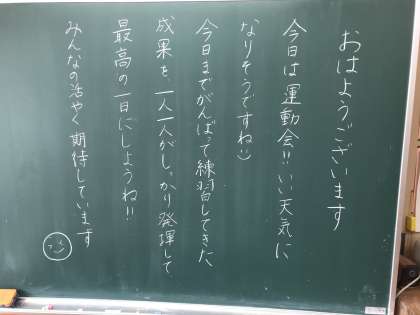 おはようございます
今日は運動会!! いい天気に
なりそうですね:)
今日までがんばって練習してきた
成果を、一人一人がしっかり発揮して
最高の一日にしようね!!
みんなの活やく期待しています